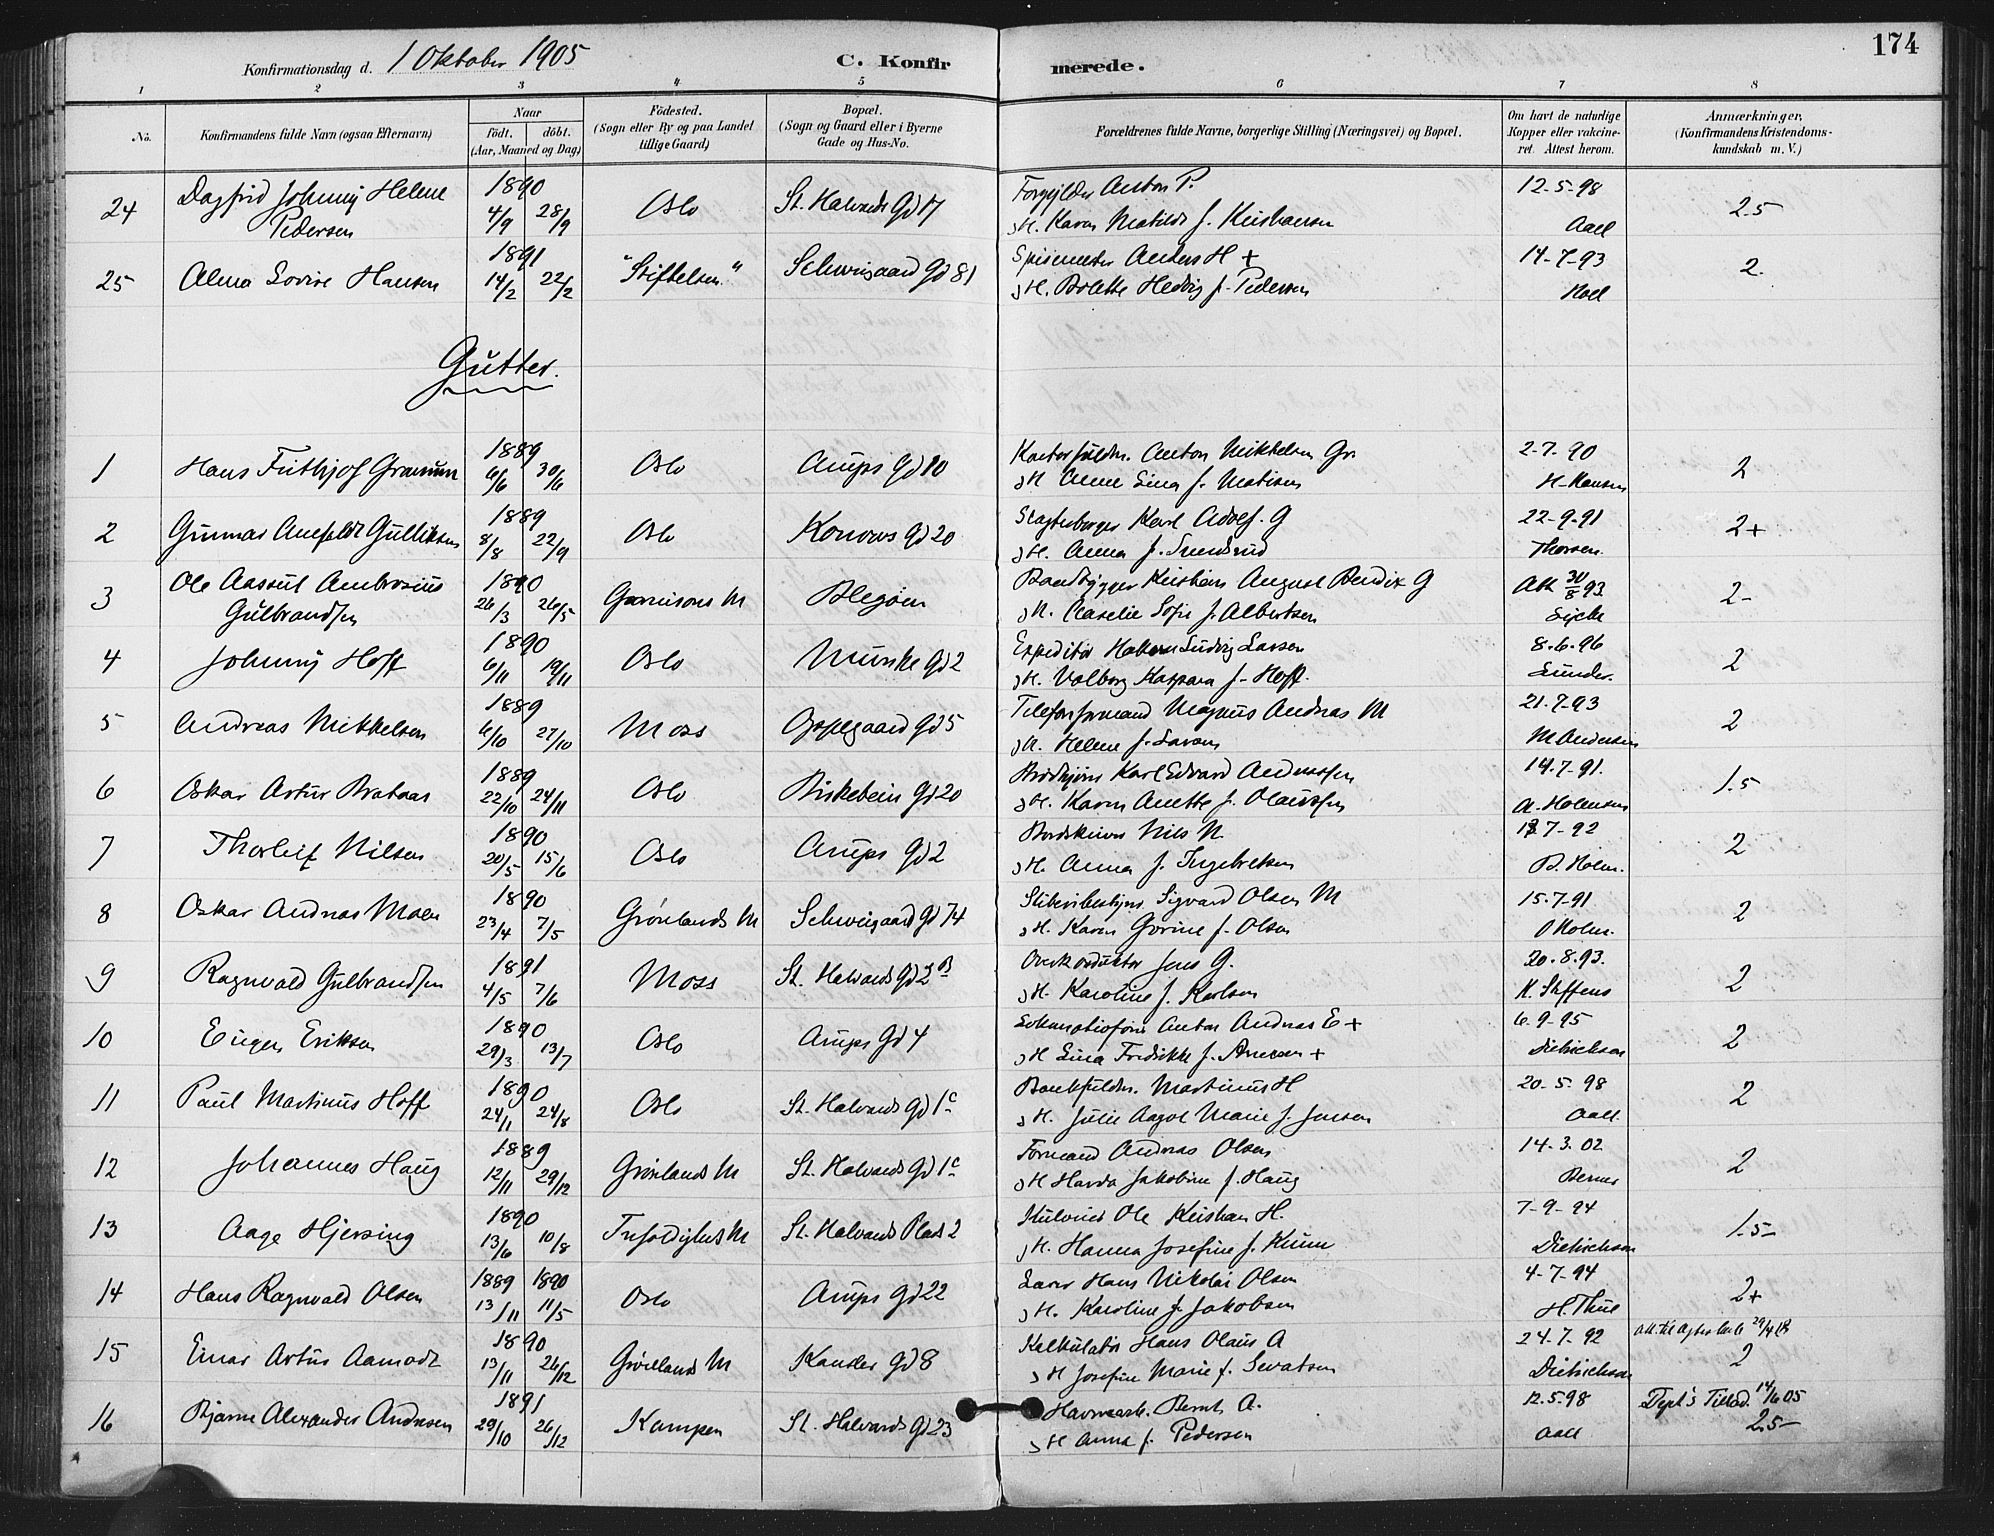 174
Konfirmationsdag d. 1 Oktober 1905 C. Konfirmerede.
1 2 3 4 5 6 7 8
No. Konfirmandens fulde Navn (ogsaa Efternavn) Naar födt. döbt. (Aar, Maaned og Dag) Födested. (Sogn eller By og paa Landet tillige Gaard) Bopæl. (Sogn og Gaard eller i Byerne Gade og Hus-No. Forældrenes fulde Navne, borgerlige Stilling (Næringsvei) og Bopæl. Om havt de naturlige Kopper eller vakcineret. Attest herom. Anmærkninger, (Konfirmandens Kristendomskundskab m. V.)
24 Dagfrid Johnny Helene Pedersen 1890 4/9 28/9 Oslo St. Halvards Gd 17 Forgylder Anton P. 12-5-98 2.5
H. Karen Matilde f. Kristiansen Aall
25 Alma Lovise Hansen 1891 14/2 22/2 "Stiftelsen" Schweigaard Gd 81 Anders H + 14-7-93 2.
H. Bolette Hedvig f. Pedersen
Gutter.
1 Hans Frithjof Granum 1889 6/6 30/6 Oslo Arups Gd 10 Kontorfuldm. Anton Mikkelsen Gr. 2-7-90 2
H Anne Lina f. Matisen H-Hansen
2 Gunnar Gulliksen 1889 8/8 22/9 Oslo Konows Gd 20 Karl Adolf. G 22-9-91 2+
H. Anna f. Thorsen.
3 Ole Aassul Ambrosius Gulbrandsen 1890 26/3 26/5 Garnisons M Blegøen Baadbygger Kristian August Bendix G Att 30/8 93 2-
H. Sofie f. Albertsen
4 Johnny Hoff 1890 6/11 19/11 Oslo Munke Gd 2 Expeditør Ludvig Larsen 8.6.96 2
H. Valborg Kaspara f. Hoff.
5 Andreas Mikkelsen 1889 6/10 27/10 Moss Oppegaard Gd 5 Telefonformand Magnus Andreas M 21.7-93 2
H. Helene f. Larsen M Andersen
6 Oskar Artur Brataas 1889 22/10 24/11 Oslo Birkebein Gd 20 Karl Edvard Andreassen 14.7-91. 1.5
H. Karen Anette f. Olaussen
7 Thorleif Nilsen 1890 20/5 15/6 Oslo Arups Gd 2 Bordskriver Nils N. 7-92 2
H. Anna f. Ingebretsen B. Holm.
8 Oskar Andreas Moen 1890 23/4 7/5 Grønlands M Schweigaard Gd 74 Sigvard Olsen M 15.7-91 2
H. Karen Gorine f. Olsen O Holm.
9 Ragnvald Gulbrandsen 1891 4/5 7/6 Moss St. Halvards Gd 2 B Overkonduktør Jens G. 20.8.93. 2
H. Karoline f. Karlsen K. Steffens
10 Eugen Eriksen 1890 29/3 13/7 Oslo Arups Gd 4 Anton Andreas E + 6-9-95 2
H Lina Fredrikke f. + Dietrichson
11 Paul Martinus Hoff 1890 24/1 24/8 Oslo St. Halvards Gd 1c Bankfuldm. Martinus H 20-5-98 2
H. Julie Aagot Marie f. Jensen Aall.
12 Johannes Haug 1889 12/11 29/12 Grønlands M St. Halvards Gd 1c Formand Andreas Olsen 14-3.02 2
H Harda Jakobine f. Haug Berner
13 Aage Hjersing 1890 13/6 10/8 Trefoldigheds M St. Halvards Plads 2 Ole Kristian H. 7-9-94 1.5-
H. Hanna Josefine f. Dietrichson
14 Hans Ragnvald Olsen 1889 13/11 1890 11/5 Oslo Arups Gd 22 Lærer Hans Nikolai Olsen 4-7-94 2+
H. Karoline f. Jakobsen H. Thue
15 Einar Artur Aamodt 1890 13/11 26/12 Grønlands M Kansler Gd 8 Kalkulatør Hans Olaus A 24-7-92 29/4 18 2
H Josefine Marie f. Sevatsen Dietrichson
16 Bjarne Alexander Andresen 1891 29/10 26/12 Kampen St. Halvards Gd 23 Havnearb. Bernt A. 12.5-98 Dept's Tillad. 14/6 05 2.5-
H Anna f. Pedersen Aall